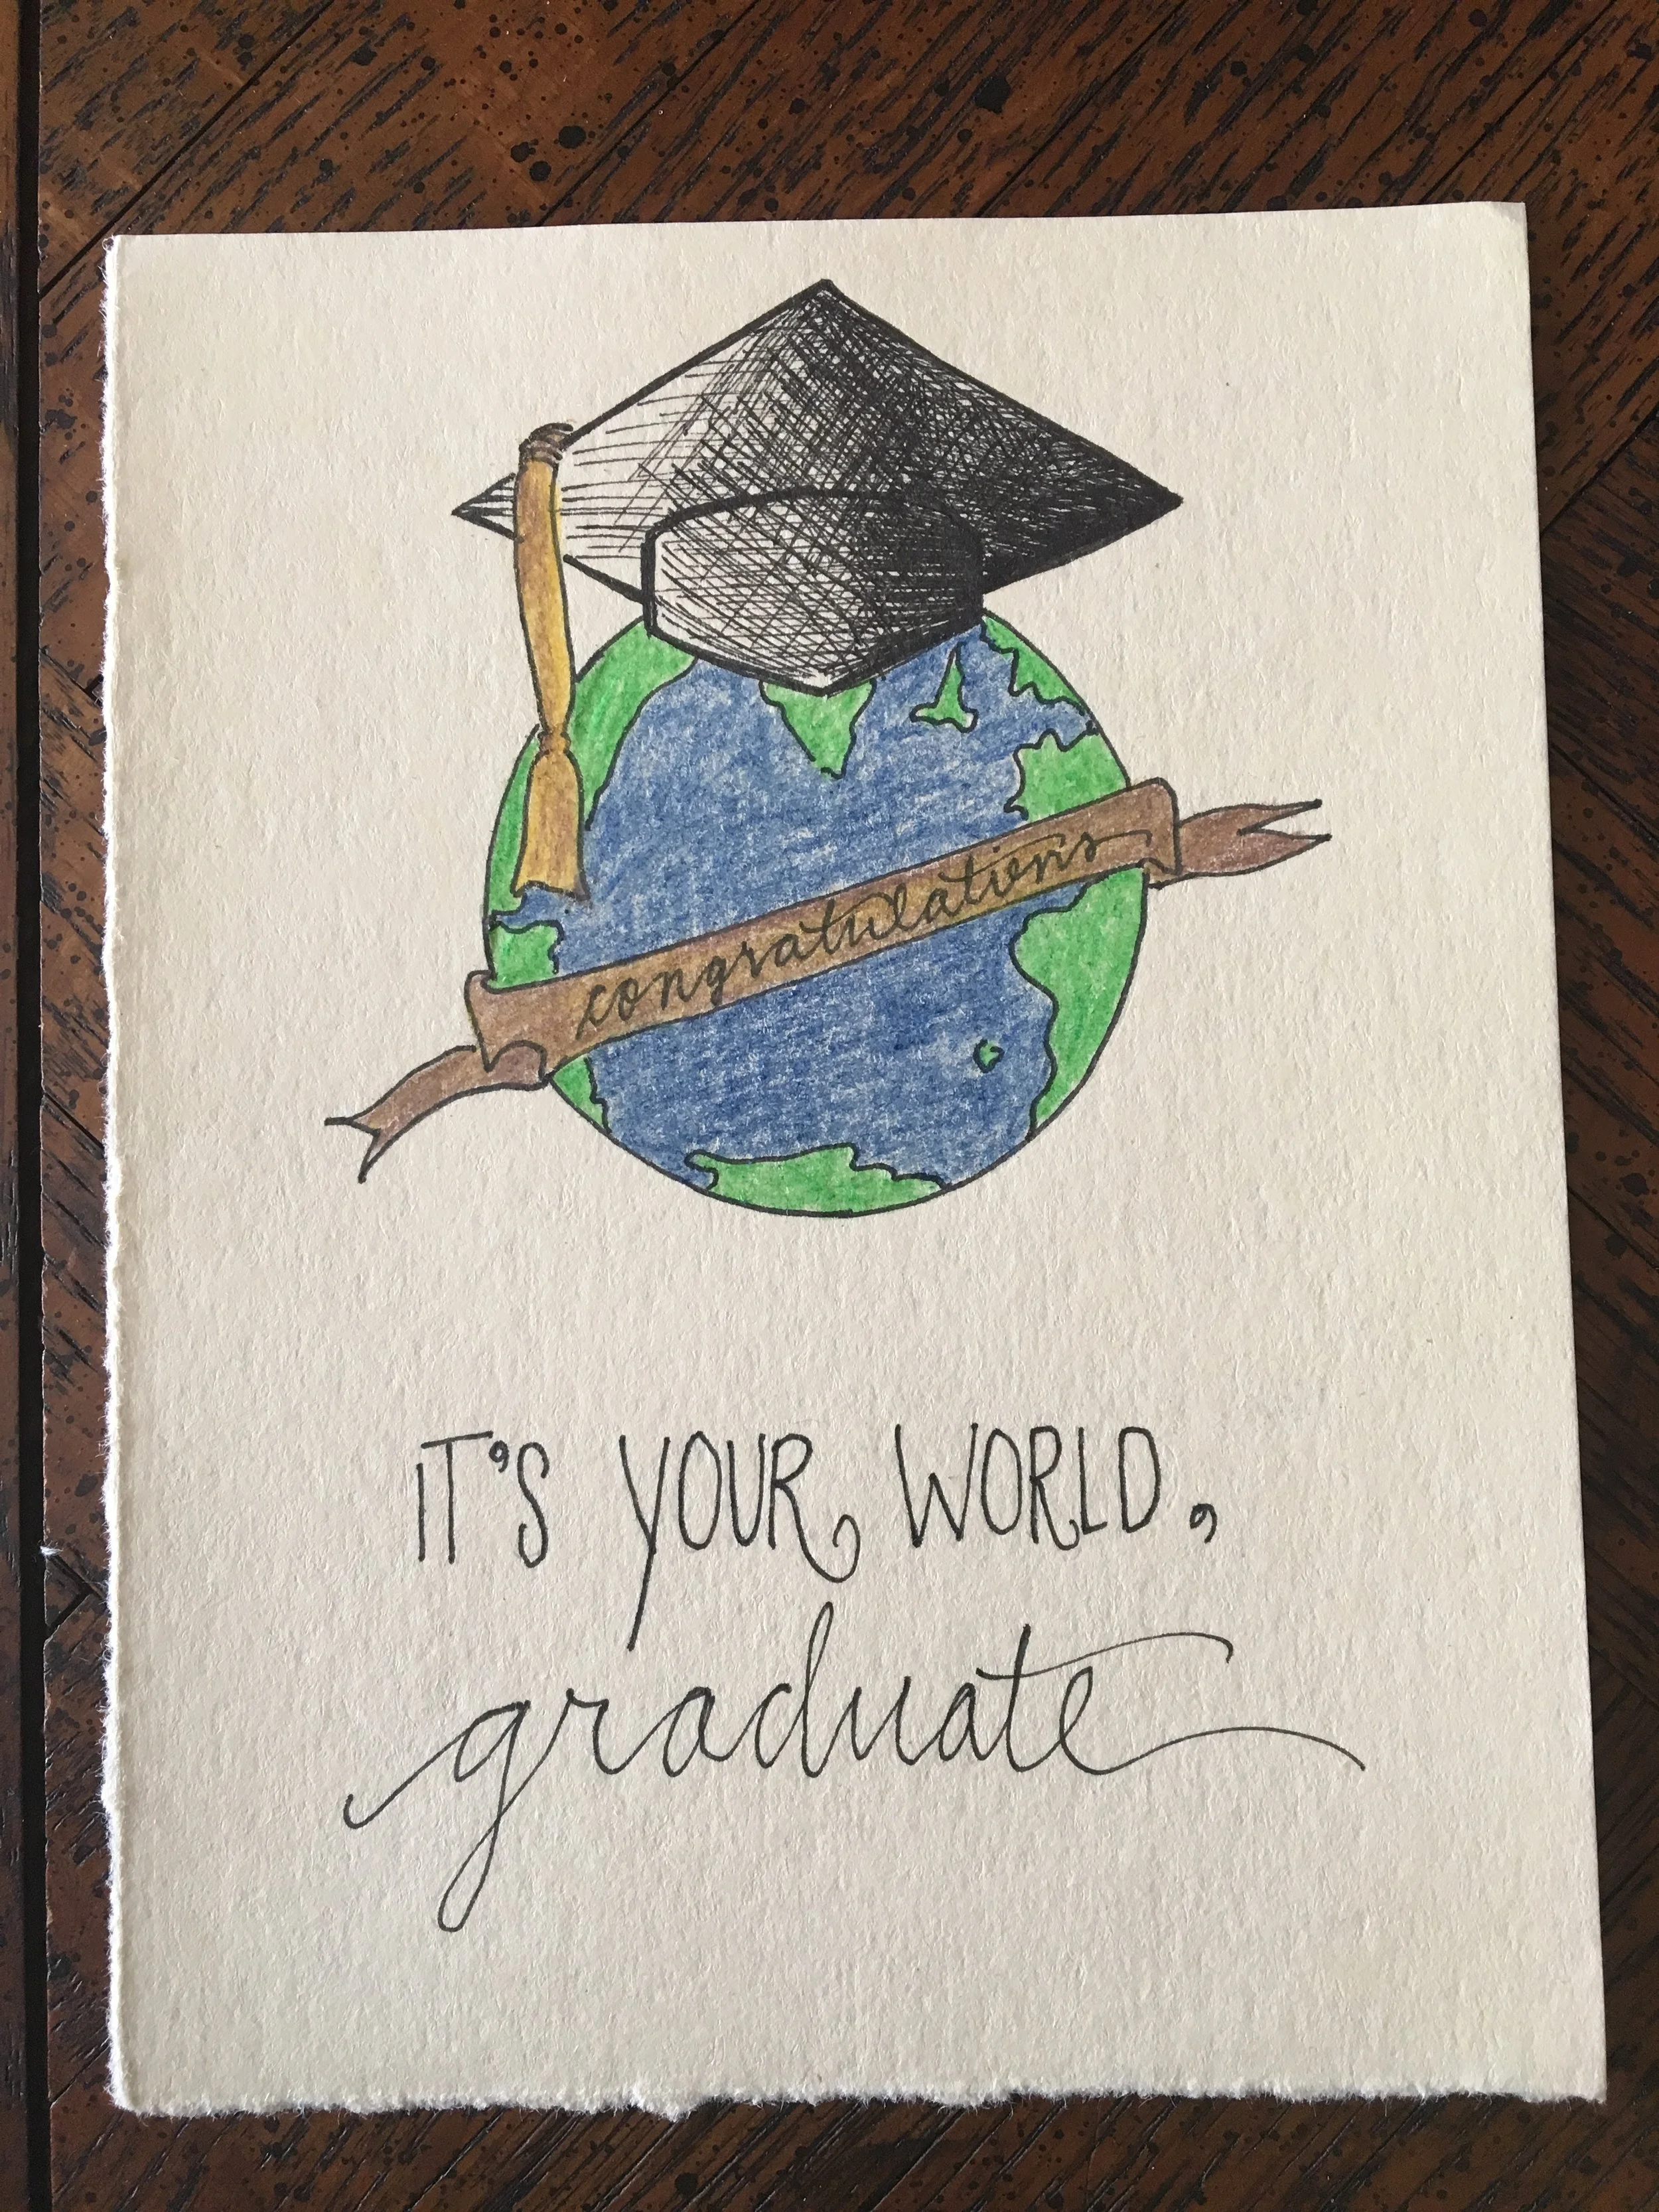 congratulations
IT'S YOUR WORLD,
graduate